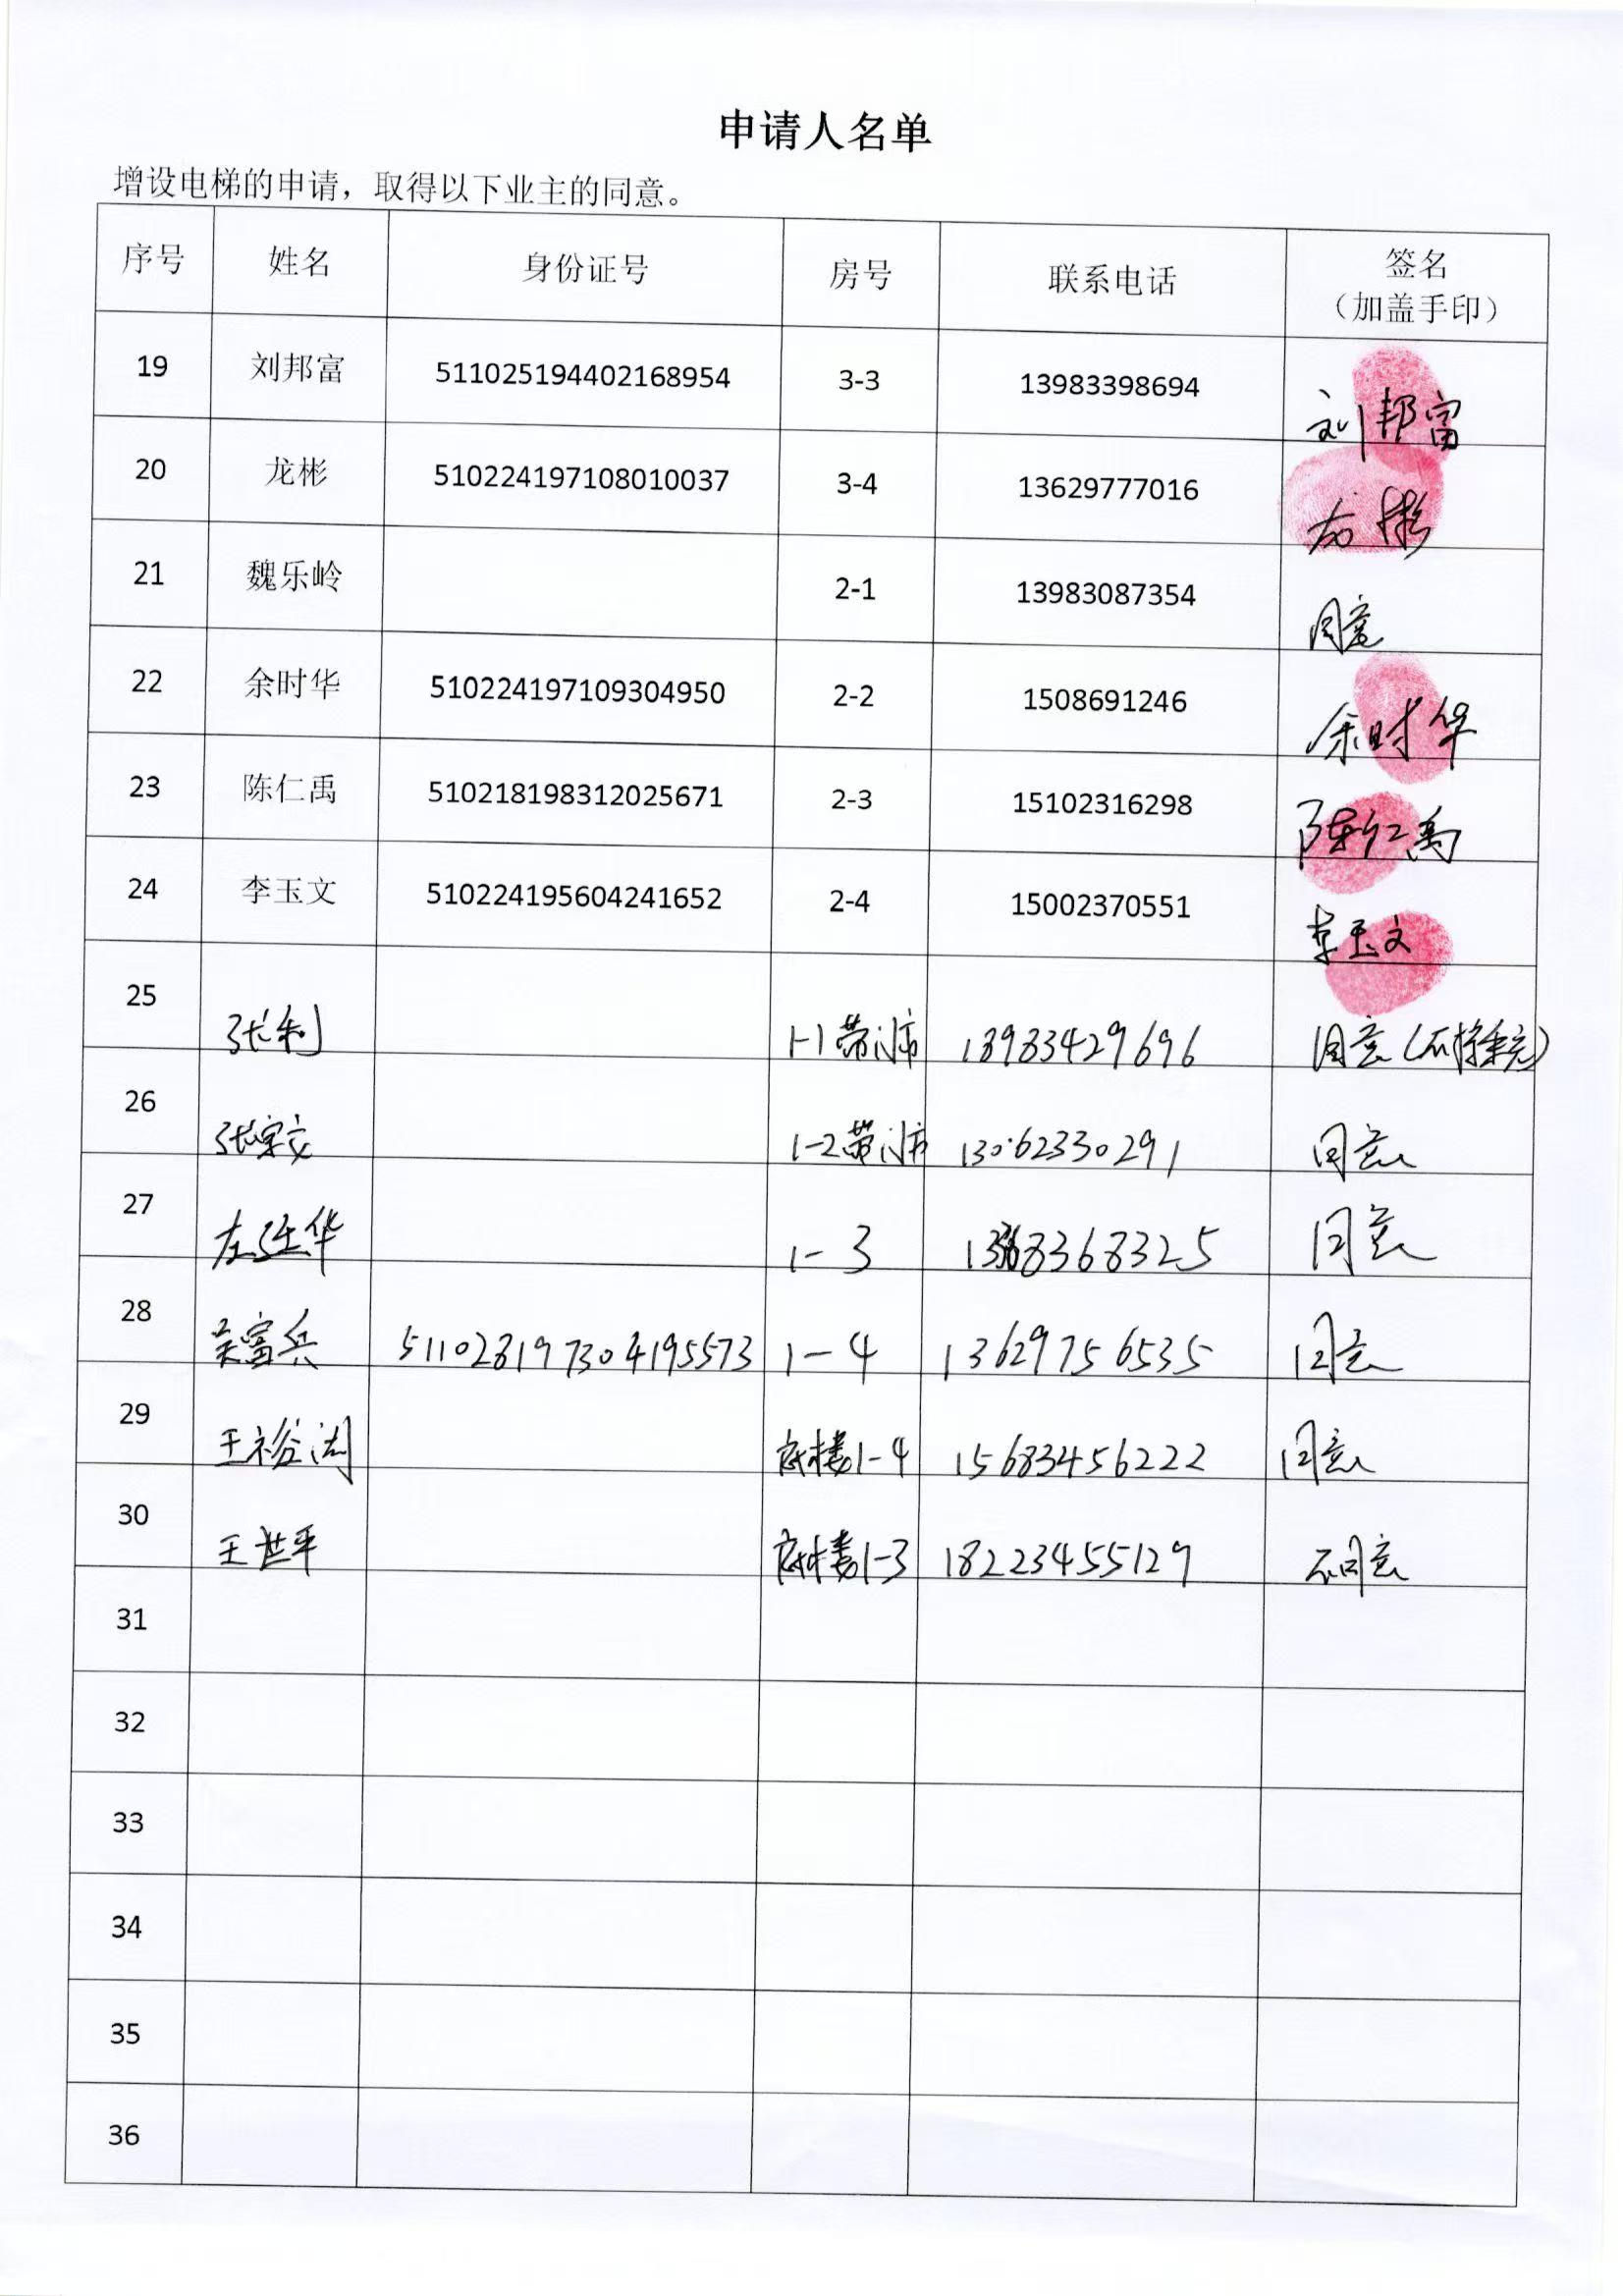 申请人名单
增设电梯的申请，取得以下业主的同意。
序号 姓名 身份证号 房号 联系电话 签名（加盖手印）
19 刘邦富 511025194402168954 3-3 13983398694 刘邦富
20 龙彬 510224197108010037 3-4 13629777016 龙彬
21 魏乐岭 2-1 13983087354 同意
22 余时华 510224197109304950 2-2 1508691246 余时华
23 陈仁禹 510218198312025671 2-3 15102316298 陈仁禹
24 李玉文 510224195604241652 2-4 15002370551 李玉文
25 张利 1-1带门市 13983429696 同意
26 张家文 1-2带门市 13062330291 同意
27 左廷华 1-3 同意
28 吴富兵 511028197304195573 1-4 13629756535 同意
29 王裕 底楼1-4 15683456222 同意
30 王世平 底楼1-3 18223455129 不同意
31
32
33
34
35
36